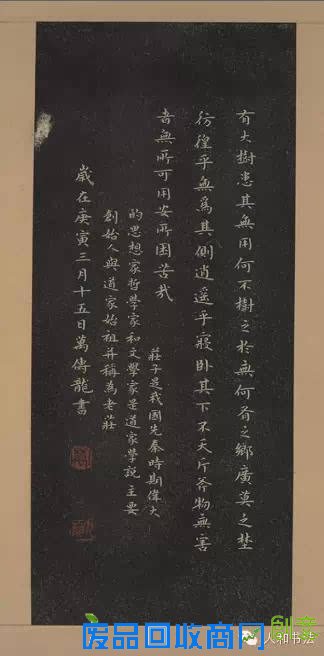 有大樹患其無用何不樹之於無何有之鄉廣莫之埜
彷徨乎無為其側逍遥乎寢卧其下不夭斤斧物無害
者無所可用安所困苦哉
莊子是我國先秦時期偉大
的思想家哲學家和文學家是道家學説主要
創始人與道家始祖并稱為老莊
歲在庚寅三月十五日萬傳龍書
人和书法
废品回收商网